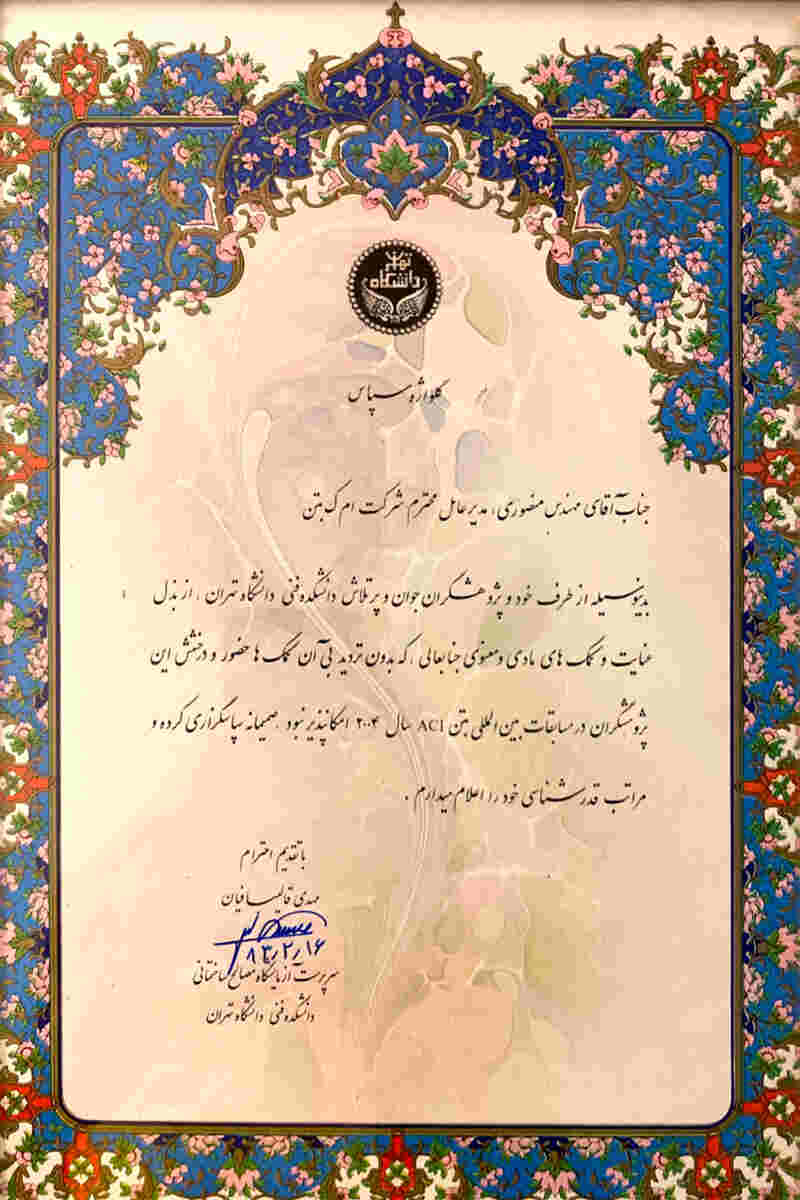 دانشگاه تهران
گلواژه سپاس
جناب آقای مهندس منصوری، مدیر عامل محترم شرکت ام ک بتن
بدینوسیله از طرف خود و پژوهشگران جوان و پر تلاش دانشکده فنی دانشگاه تهران ، از بذل
عنایت و کمک های مادی و معنوی جنابعالی ، که بدون تردید بی آن کمک ها حضور و درخشش این
پژوهشگران در مسابقات بین المللی بتن ACI سال ۲۰۰۴ امکانپذیر نبود ، صمیمانه سپاسگزاری کرده و
مراتب قدرشناسی خود را اعلام میدارم .
با تقدیم احترام
مهدی قالیبافیان
۸۳٫۲٫۱۶
سرپرست آزمایشگاه مصالح ساختمانی
دانشکده فنی دانشگاه تهران